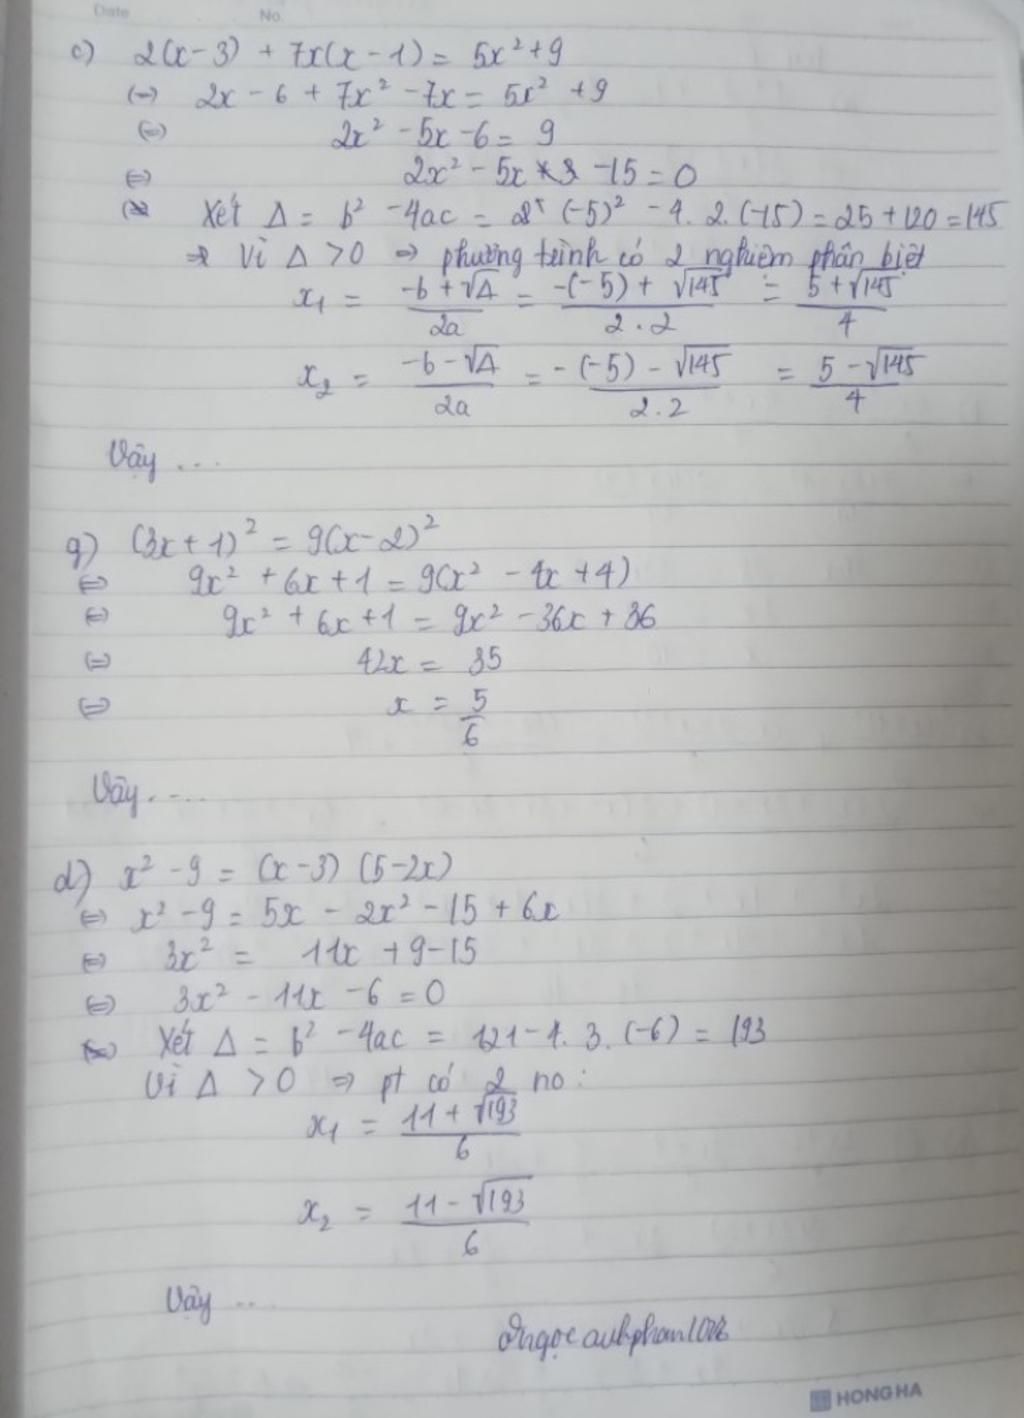 Date No.
c) 2(x-3) + 7x(x-1) = 5x² + 9
(=) 2x - 6 + 7x² - 7x = 5x² + 9
(=) 2x² - 5x - 6 = 9
(=) 2x² - 5x - 15 = 0
Xét Δ = b² - 4ac = (-5)² - 4.2.(-15) = 25 + 120 = 145
Vì Δ > 0 => phương trình có 2 nghiệm phân biệt
x₁ = (-b + √Δ)/2a = (-(-5) + √145)/2.2 = (5 + √145)/4
x₂ = (-b - √Δ)/2a = (-(-5) - √145)/2.2 = (5 - √145)/4
Vậy ...
g) (3x+1)² = 9(x-2)²
(=) 9x² + 6x + 1 = 9(x² - 4x + 4)
(=) 9x² + 6x + 1 = 9x² - 36x + 36
(=) 42x = 35
(=) x = 5/6
Vậy ....
d) x² - 9 = (x-3) (5-2x)
(=) x² - 9 = 5x - 2x² - 15 + 6x
(=) 3x² = 11x + 9 - 15
(=) 3x² - 11x - 6 = 0
Xét Δ = b² - 4ac = 121 - 4.3.(-6) = 193
Vì Δ > 0 => pt có 2 no:
x₁ = (11 + √193)/6
x₂ = (11 - √193)/6
Vậy ...
HONG HA